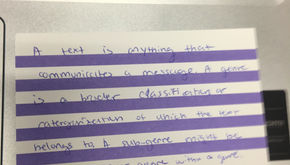 A text is anything that
communicates a message. A genre
is a broader classification or
categorization of which the text
belongs to. A sub-genre might be
genre within a genre.